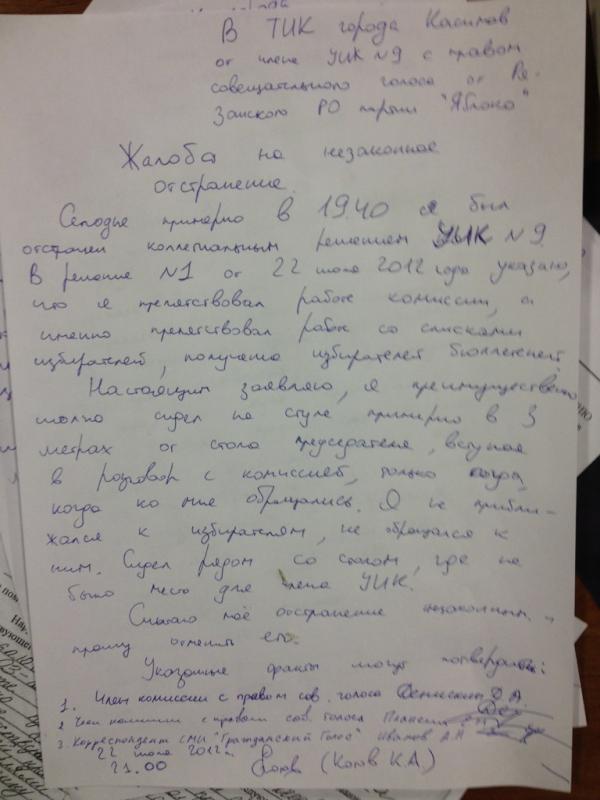 В ТИК города Касимов
от члена УИК №9 с правом
совещательного голоса от Ря-
занского РО партии "Яблоко"
Жалоба на незаконное
отстранение.
Сегодня примерно в 19.40 я был
отстранен коллегиальным решением УИК №9.
В решение №1 от 22 июля 2012 года указано,
что я препятствовал работе комиссии, а
именно препятствовал работе со списками
избирателей, получению избирателей бюллетеней.
Настоящим заявляю, я преимущественно
только сидел на стуле примерно в 3
метрах от стола председателя, вступая
в разговор с комиссией, только когда,
когда ко мне обращались. Я не прибли-
жался к избирателям, не обращался к
ним. Сидел рядом со столом, где не
было место для члена УИК.
Считаю моё отстранение незаконным.
прошу отменить его.
Указанные факты могут подтвердить:
1. Член комиссии с правом сов. голоса Д.А
2 Член комиссии с правом сов. голоса
3. Корреспондент СМИ "Гражданский Голос" Иванов А.Н
22 июля 2012 г.
21.00 (Котов К.А)